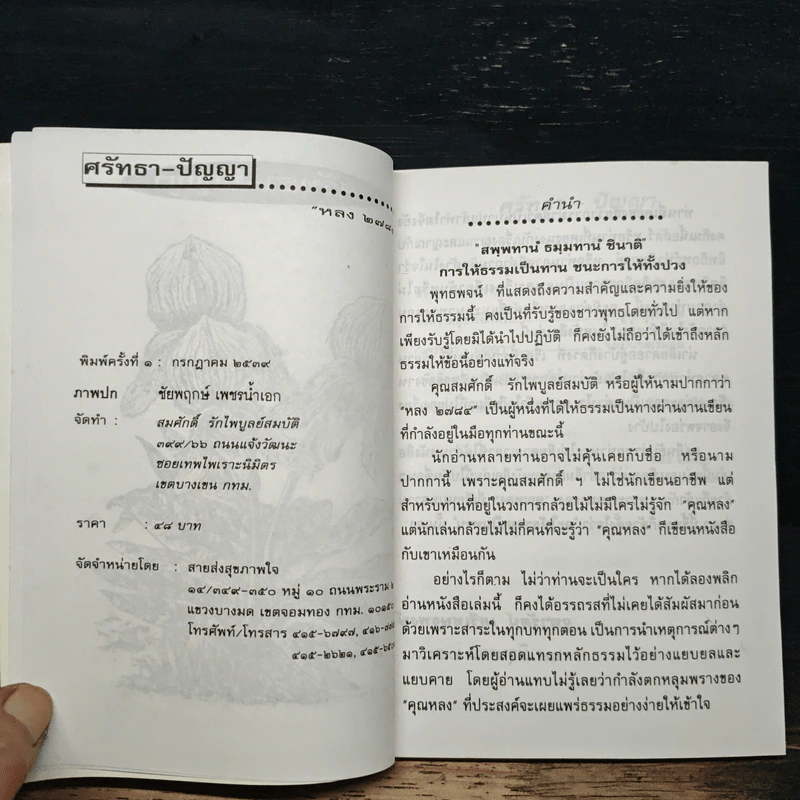 ศรัทธา-ปัญญา
"หลง ๒๗๘
พิมพ์ครั้งที่ ๑ : กรกฎาคม ๒๕๓๙
ภาพปก ชัยพฤกษ์ เพชรน้ำเอก
จัดทำ : สมศักดิ์ รักไพบูลย์สมบัติ
๓๙๙/๖๖ ถนนแจ้งวัฒนะ
ซอยเทพไพเราะนิมิตร
เขตบางเขน กทม.
ราคา : ๔๘ บาท
จัดจำหน่ายโดย : สายส่งสุขภาพใจ
๑๔/๓๔๙-๓๕๐ หมู่ ๑๐ ถนนพระราม ๒
แขวงบางมด เขตจอมทอง กทม. ๑๐๑๕๐
โทรศัพท์/โทรสาร ๔๑๕-๖๗๙๗, ๔๑๖-๗๗
๔๑๕-๒๖๒๑, ๔๑๕-๖๕
คำนำ
"สพฺพทานํ ธมฺมทานํ ชินาติ"
การให้ธรรมเป็นทาน ชนะการให้ทั้งปวง
พุทธพจน์ ที่แสดงถึงความสำคัญและความยิ่งให้ของ
การให้ธรรมนี้ คงเป็นที่รับรู้ของชาวพุทธโดยทั่วไป แต่หาก
เพียงรับรู้โดยมิได้นำไปปฏิบัติ ก็คงยังไม่ถือว่าได้เข้าถึงหลัก
ธรรมให้ข้อนี้อย่างแท้จริง
คุณสมศักดิ์ รักไพบูลย์สมบัติ หรือผู้ให้นามปากกาว่า
"หลง ๒๗๘๔" เป็นผู้หนึ่งที่ได้ให้ธรรมเป็นทางผ่านงานเขียน
ที่กำลังอยู่ในมือทุกท่านขณะนี้
นักอ่านหลายท่านอาจไม่คุ้นเคยกับชื่อ หรือนาม
ปากกานี้ เพราะคุณสมศักดิ์ ฯ ไม่ใช่นักเขียนอาชีพ แต่
สำหรับท่านที่อยู่ในวงการกล้วยไม้ไม่มีใครไม่รู้จัก "คุณหลง"
แต่นักเล่นกล้วยไม้ไม่กี่คนที่จะรู้ว่า "คุณหลง" ก็เขียนหนังสือ
กับเขาเหมือนกัน
อย่างไรก็ตาม ไม่ว่าท่านจะเป็นใคร หากได้ลองพลิก
อ่านหนังสือเล่มนี้ ก็คงได้อรรถรสที่ไม่เคยได้สัมผัสมาก่อน
ด้วยเพราะสาระในทุกบททุกตอน เป็นการนำเหตุการณ์ต่างๆ
มาวิเคราะห์โดยสอดแทรกหลักธรรมไว้อย่างแยบยลและ
แยบคาย โดยผู้อ่านแทบไม่รู้เลยว่ากำลังตกหลุมพรางของ
"คุณหลง" ที่ประสงค์จะเผยแพร่ธรรมอย่างง่ายให้เข้าใจ